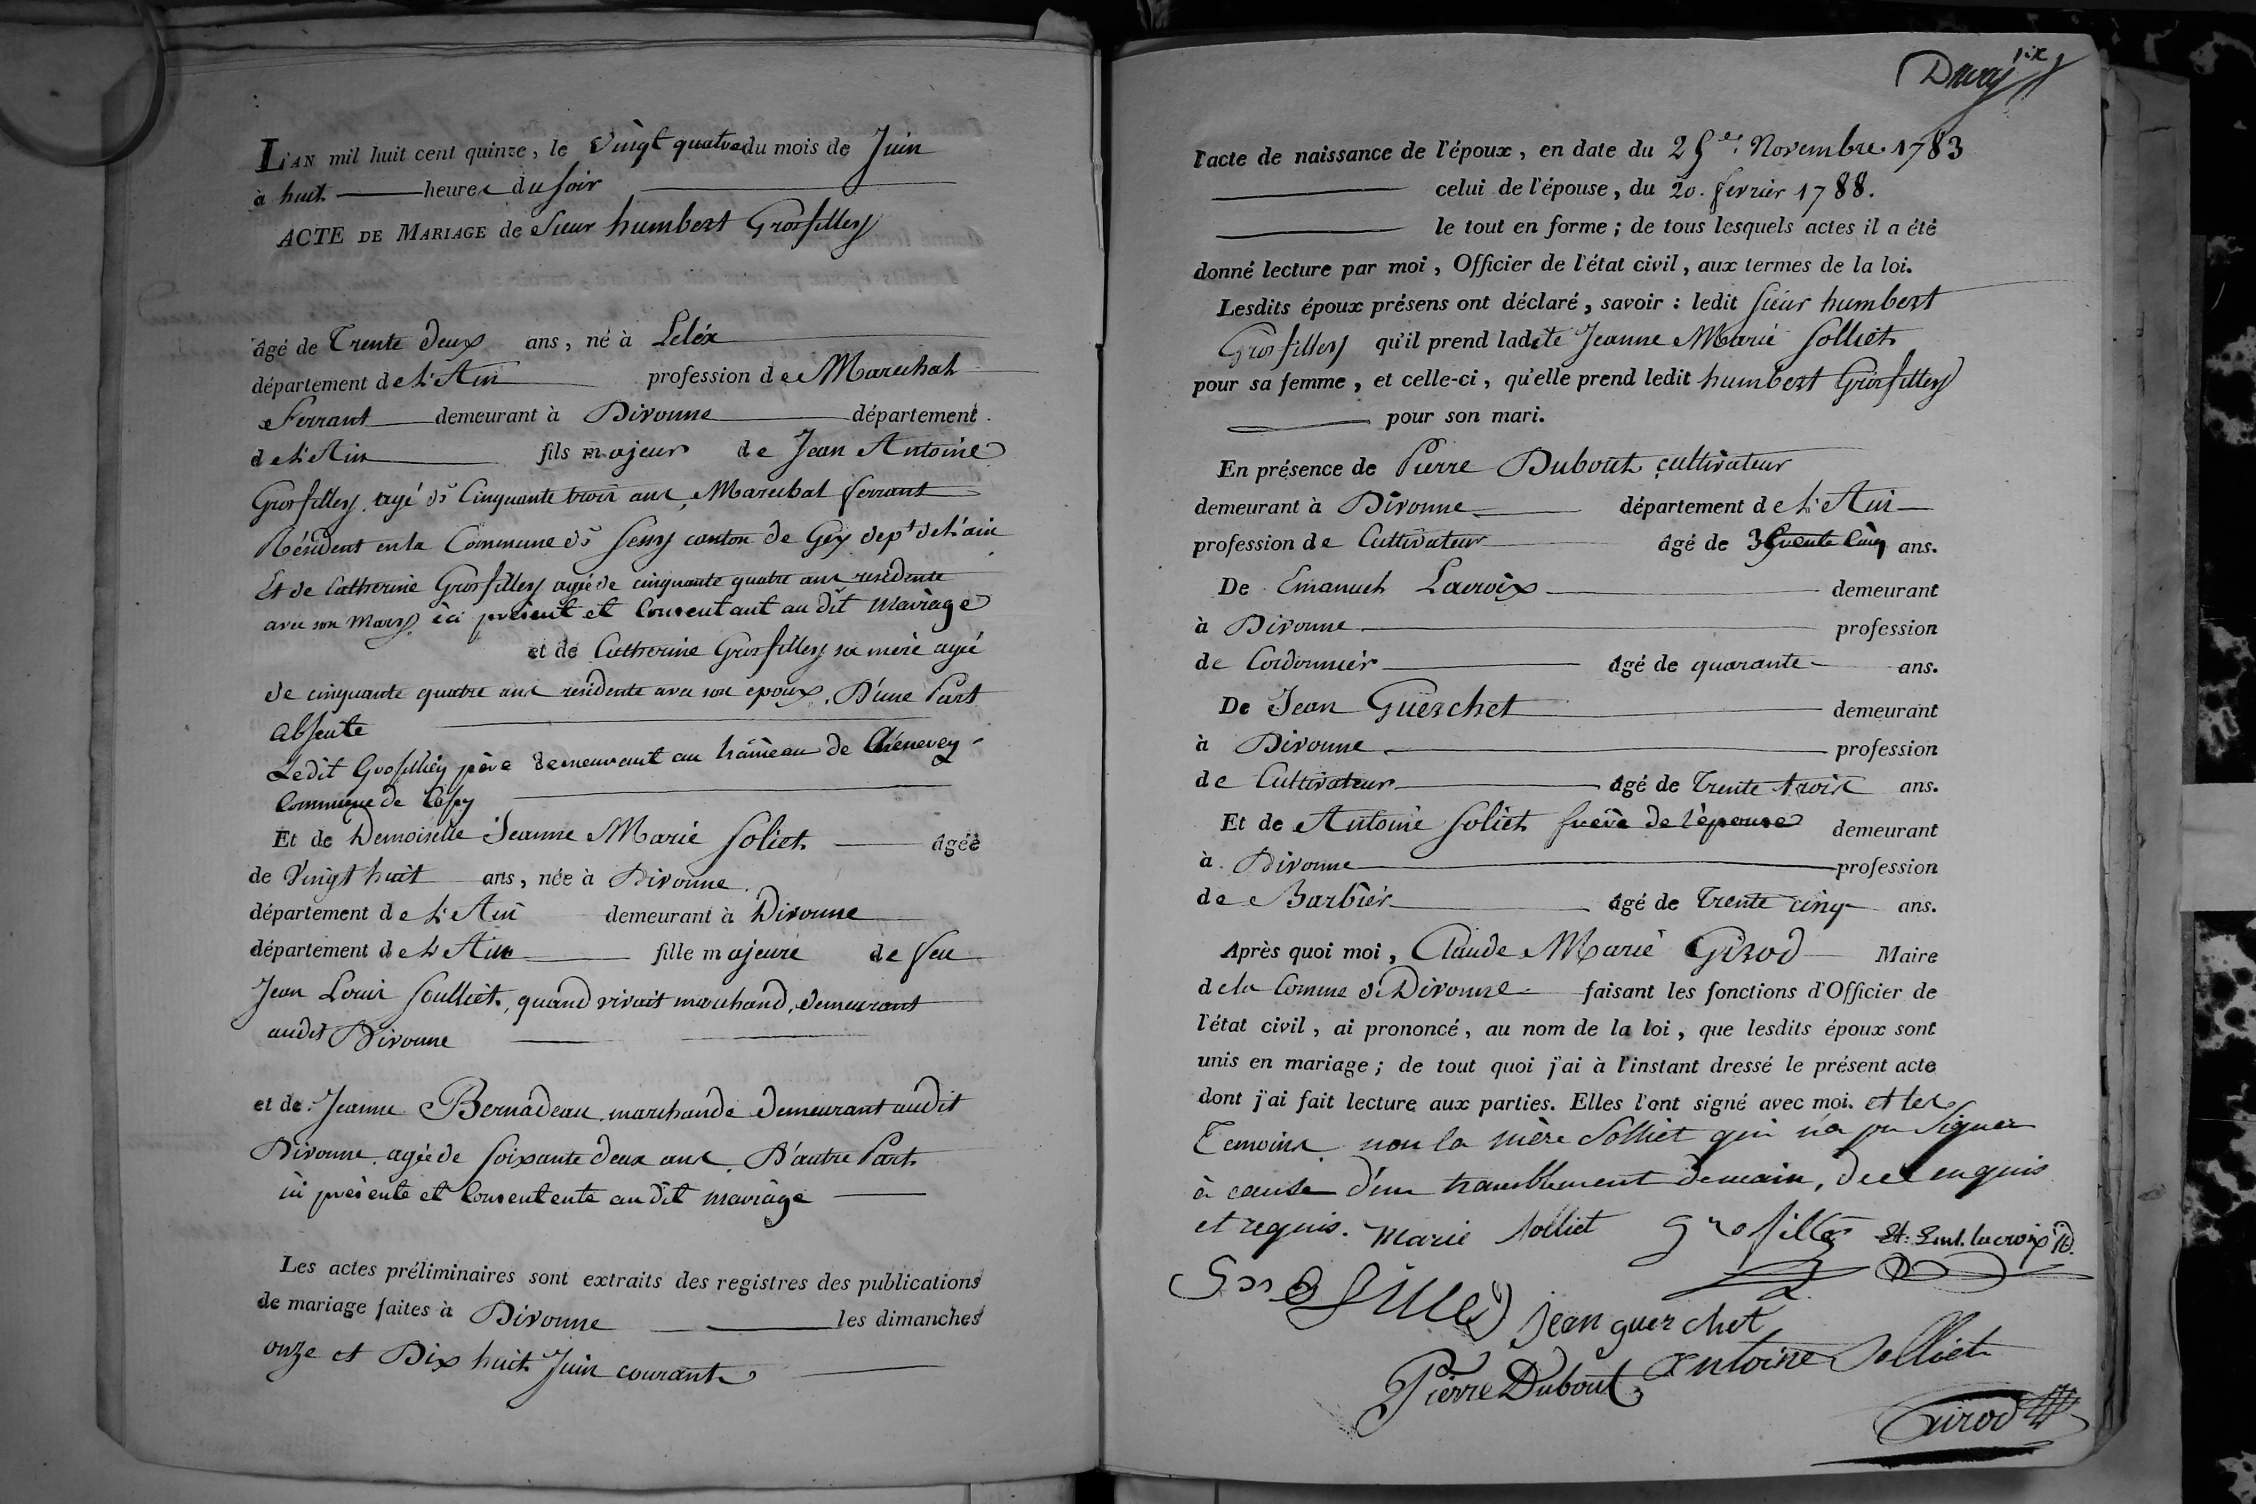 L'AN mil huit cent quinze, le vingt quatre du mois de Juin
à huit heures du soir
ACTE DE MARIAGE de Sieur humbert Grosfilley
âgé de Trente deux ans, né à Leléx
département de L'Ain profession de Marechal
Ferrant demeurant à Divonne département
de L'Ain fils majeur de Jean Antoine
Grosfilley, agé de Cinquante trois ans, Marechal ferrant
Résident en la Commune de Sessy canton de Gex dept de L'ain
Et de Catherine Grosfilley agée de cinquante quatre ans residente
avec son mary, ici présent et Consentant au dit mariage
et de Catherine Grosfilley sa mère agée
de cinquante quatre ans residente avec son epoux, D'une Part
absente
Ledit Grosfilley père demeurant au hameau de Chenevey
Commune de Cessy
Et de Demoiselle Jeanne Marie Soliet âgée
de Vingt huit ans, née à Divonne
département de L'Ain demeurant à Divonne
département de L'Ain fille majeure de feu
Jean Louis Soulliet, quand vivait marchand, demeurant
audit Divonne
et de Jeanne Bernadeau marchande demeurant audit
Divonne, agée de Soixante deux ans, D'autre Part
ici présente et Consentente au dit mariage
Les actes préliminaires sont extraits des registres des publications
de mariage faites à Divonne les dimanches
onze et Dix huit Juin courant
l'acte de naissance de l'époux, en date du Novembre 1783
celui de l'épouse, du 20. fevrier 1788.
le tout en forme ; de tous lesquels actes il a été
donné lecture par moi, Officier de l'état civil, aux termes de la loi.
Lesdits époux présens ont déclaré, savoir : ledit Sieur humbert
Grosfilley qu'il prend ladite Jeanne Marie Solliet
pour sa femme, et celle-ci, qu'elle prend ledit humbert Grosfilley
pour son mari.
En présence de Pierre Dubout cultivateur
demeurant à Divonne département de L'Ain
profession de Cultivateur âgé de Trente Cinq ans.
De Emanuel Lacroix demeurant
à Divonne profession
de Cordonnier âgé de quarante ans.
De Jean Guerchet demeurant
à Divonne profession
de Cultivateur âgé de Trente trois ans.
Et de Antoine Soliet frère de l'épouse demeurant
à Divonne profession
de Barbier âgé de Trente cinq ans.
Après quoi moi, Claude Marie Girod Maire
de la Comune de Divonne faisant les fonctions d'Officier de
l'état civil, ai prononcé, au nom de la loi, que lesdits époux sont
unis en mariage ; de tout quoi j'ai à l'instant dressé le présent acte
dont j'ai fait lecture aux parties. Elles l'ont signé avec moi. et les
Temoins non la mère Solliet qui n'a pu Signer
à cause d'un tramblement de main, de ce enquis
et requis. Marie Solliet Grofilley Et: Eml. lacroix
Jean guerchet
Pierre Dubout Antoine Solliet
Girod